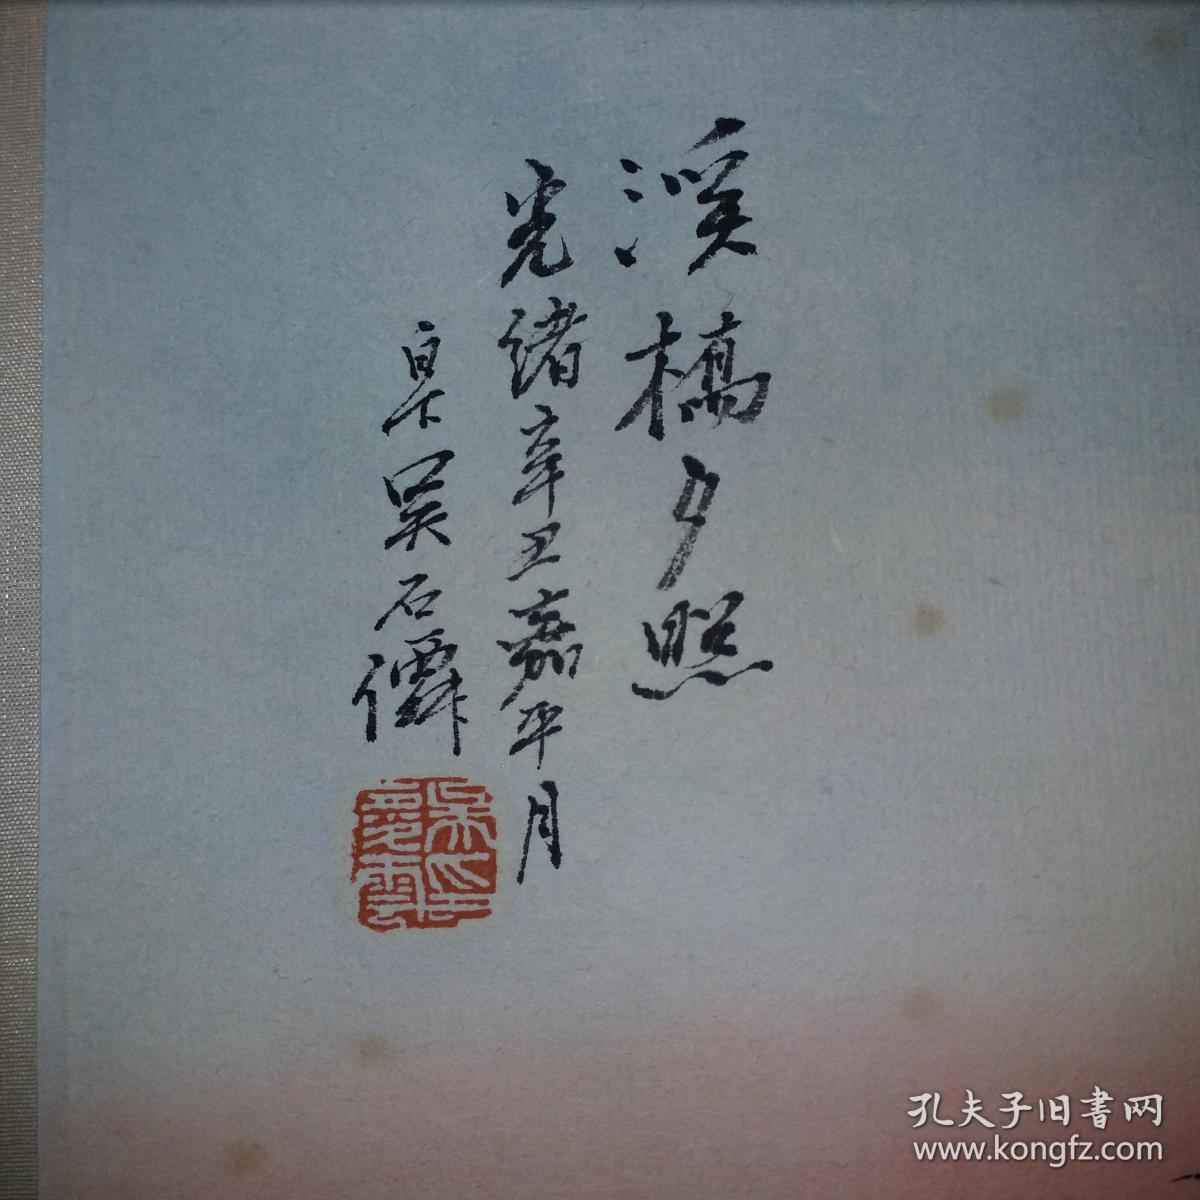 溪橋夕照
光緒辛丑嘉平月
白下吴石僊
孔夫子旧書网
www.kongfz.com